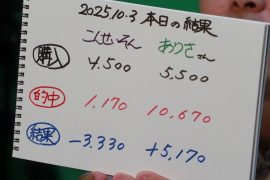 2025.10.3 本日の結果
こんせいそん ありささん
購入 4,500 5,500
的中 1,170 10,670
結果 -3,330 +5,170